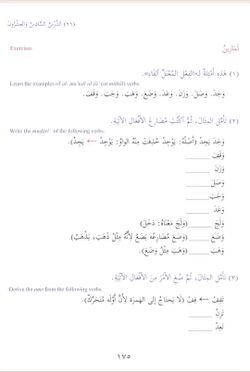 (٢٦) الدَّرْسُ السَّادِسُ وَالْعِشْرُونَ
Exercises
تَمَارِينُ
(١) هَذِهِ أَمْثِلَةٌ لـ«الفِعْلِ المُعْتَلِّ الْفَاءِ».
Learn the examples of al-muʻtall al-fāʼ (or mithāl) verbs.
وَجَدَ. وَصَلَ. وَزَنَ. وَعَدَ. وَضَعَ. وَهَبَ. وَجَبَ. وَقَفَ.
(٢) تَأَمَّلِ المِثَالَ، ثُمَّ اكْتُبْ مُضَارِعَ الأَفْعَالِ الآتِيَةِ.
Write the muḍāriʻ of the following verbs.
وَجَدَ يَجِدُ (أَصْلُهُ: يَوْجِدُ حُذِفَتْ مِنْهُ الوَاوُ: يَوْجِدُ ← يَجِدُ).
وَقَفَ
وَزَنَ
وَصَلَ
وَجَبَ
وَعَدَ
وَلَجَ (وَلَجَ مَعْنَاهُ: دَخَلَ)
وَضَعَ (وَضَعَ مُضَارِعُهُ يَضَعُ لأَنَّهُ مِثْلُ ذَهَبَ، يَذْهَبُ)
وَهَبَ (وَهَبَ مِثْلُ وَضَعَ).
(٣) تَأَمَّلِ المِثَالَ، ثُمَّ صُغِ الأَمْرَ مِنَ الأَفْعَالِ الآتِيَةِ.
Derive the amr from the following verbs.
تَقِفُ ← قِفْ (لَا يَحْتَاجُ إِلَى الهَمْزَةِ لأَنَّ أَوَّلَهُ مُتَحَرِّكٌ).
تَزِنُ
تَعِدُ
١٧٥